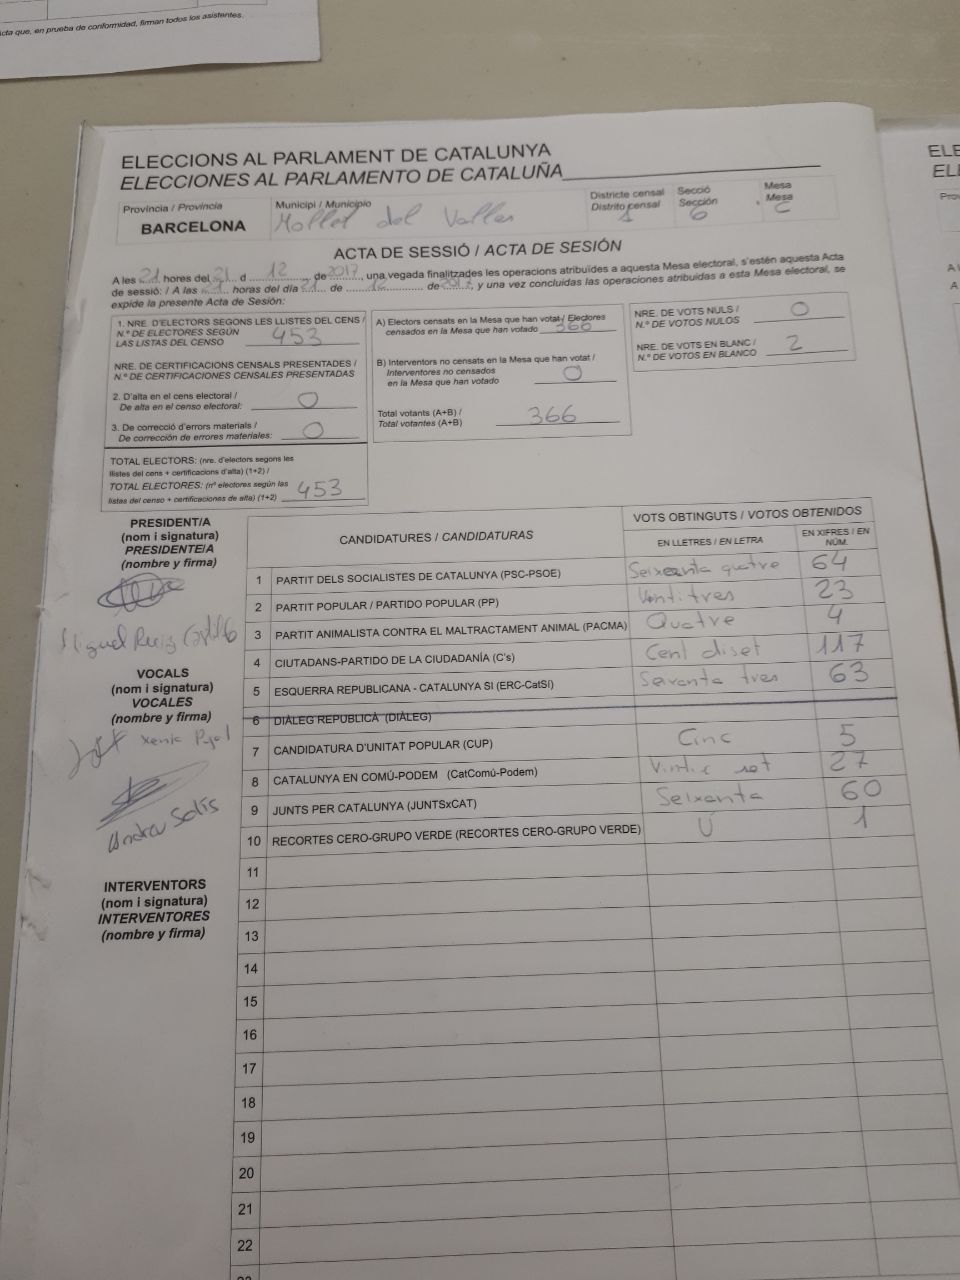 Acta que, en prueba de conformidad, firman todos los asistentes.
ELECCIONS AL PARLAMENT DE CATALUNYA
ELECCIONES AL PARLAMENTO DE CATALUÑA
Província / Provincia
BARCELONA
Municipi / Municipio
Mollet del Valles
Districte censal
Distrito censal
1
Secció
Sección
6
Mesa
Mesa
C
ACTA DE SESSIÓ / ACTA DE SESIÓN
A les 21 hores del 21 d 12 de 2017, una vegada finalitzades les operacions atribuïdes a aquesta Mesa electoral, s'estén aquesta Acta
de sessió: / A las 21 horas del día 21 de 12 de 2017, y una vez concluidas las operaciones atribuidas a esta Mesa electoral, se
expide la presente Acta de Sesión:
1. NRE. D'ELECTORS SEGONS LES LLISTES DEL CENS /
N.º DE ELECTORES SEGÚN
LAS LISTAS DEL CENSO 453
NRE. DE CERTIFICACIONS CENSALS PRESENTADES /
N.º DE CERTIFICACIONES CENSALES PRESENTADAS
2. D'alta en el cens electoral /
De alta en el censo electoral: 0
3. De correcció d'errors materials /
De corrección de errores materiales: 0
TOTAL ELECTORS: (nre. d'electors segons les
llistes del cens + certificacions d'alta) (1+2) /
TOTAL ELECTORES: (nº electores según las
listas del censo + certificaciones de alta) (1+2) 453
A) Electors censats en la Mesa que han votat / Electores
censados en la Mesa que han votado 366
B) Interventors no censats en la Mesa que han votat /
Interventores no censados
en la Mesa que han votado 0
Total votants (A+B) /
Total votantes (A+B) 366
NRE. DE VOTS NULS /
N.º DE VOTOS NULOS 0
NRE. DE VOTS EN BLANC /
N.º DE VOTOS EN BLANCO 2
PRESIDENT/A
(nom i signatura)
PRESIDENTE/A
(nombre y firma)
Miguel Ruiz Castillo
VOCALS
(nom i signatura)
VOCALES
(nombre y firma)
Xenia Pujol
Andreu Solís
INTERVENTORS
(nom i signatura)
INTERVENTORES
(nombre y firma)
CANDIDATURES / CANDIDATURAS
VOTS OBTINGUTS / VOTOS OBTENIDOS
EN LLETRES / EN LETRA
EN XIFRES / EN NÚM.
1 PARTIT DELS SOCIALISTES DE CATALUNYA (PSC-PSOE) Seixanta quatre 64
2 PARTIT POPULAR / PARTIDO POPULAR (PP) Vint i tres 23
3 PARTIT ANIMALISTA CONTRA EL MALTRACTAMENT ANIMAL (PACMA) Quatre 4
4 CIUTADANS-PARTIDO DE LA CIUDADANÍA (C's) Cent diset 117
5 ESQUERRA REPUBLICANA - CATALUNYA SI (ERC-CatSí) Seixanta tres 63
6 DIÀLEG REPUBLICÀ (DIÀLEG)
7 CANDIDATURA D'UNITAT POPULAR (CUP) Cinc 5
8 CATALUNYA EN COMÚ-PODEM (CatComú-Podem) Vint i set 27
9 JUNTS PER CATALUNYA (JUNTSxCAT) Seixanta 60
10 RECORTES CERO-GRUPO VERDE (RECORTES CERO-GRUPO VERDE) U 1
11
12
13
14
15
16
17
18
19
20
21
22
23